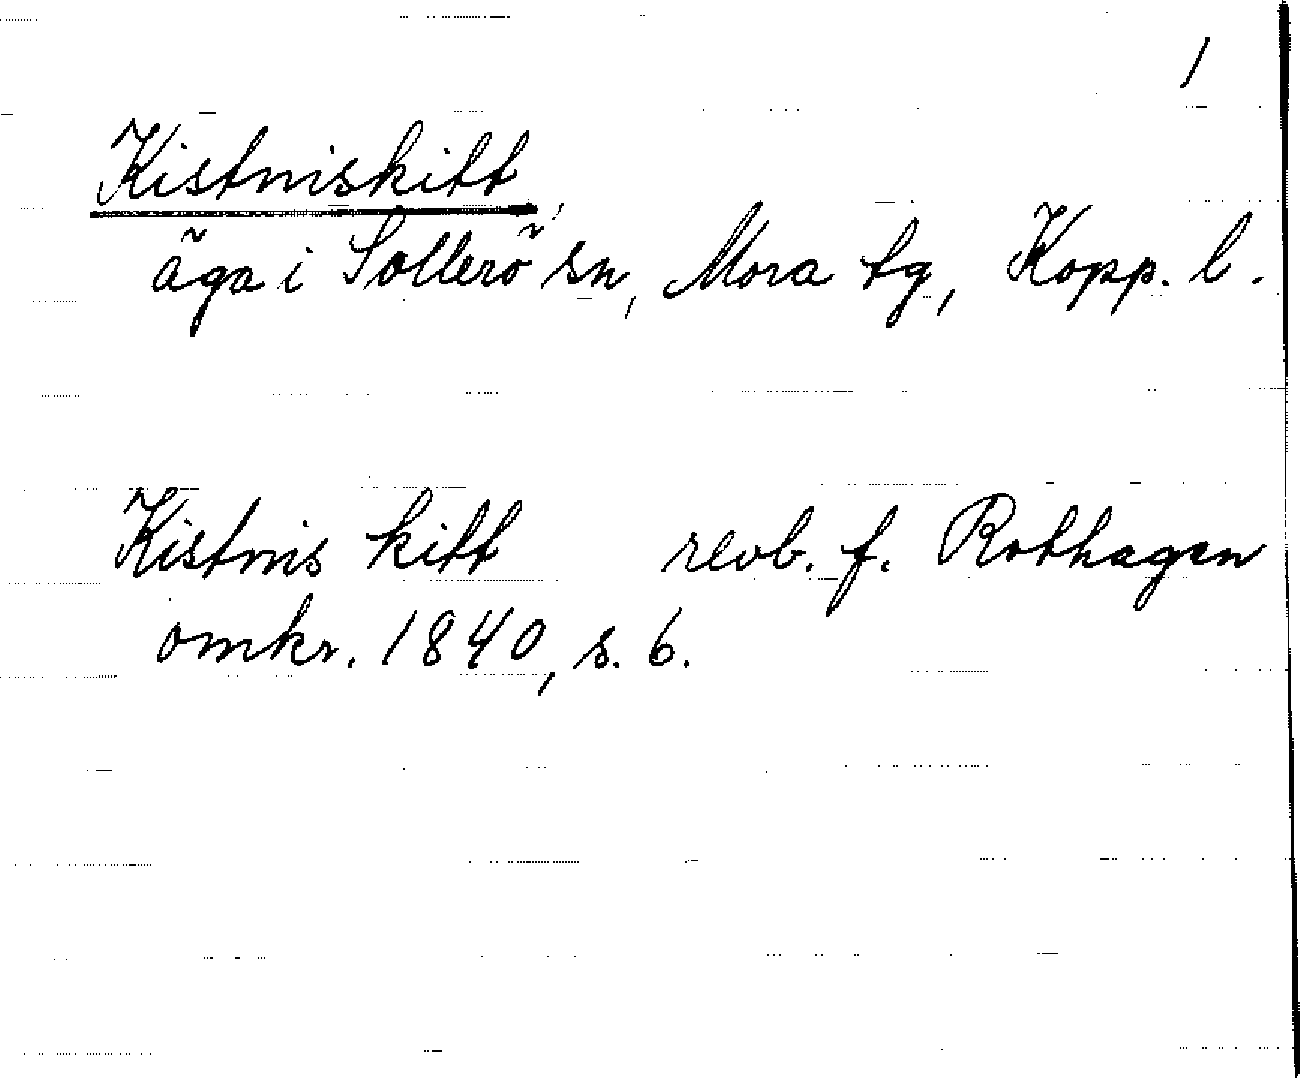 1
Kistmiskitt,
äga i Sollerö sn, Mora tg, Kopp. l.
Kistmis kitt revb. f. Rothagen
omkr. 1840, s. 6.